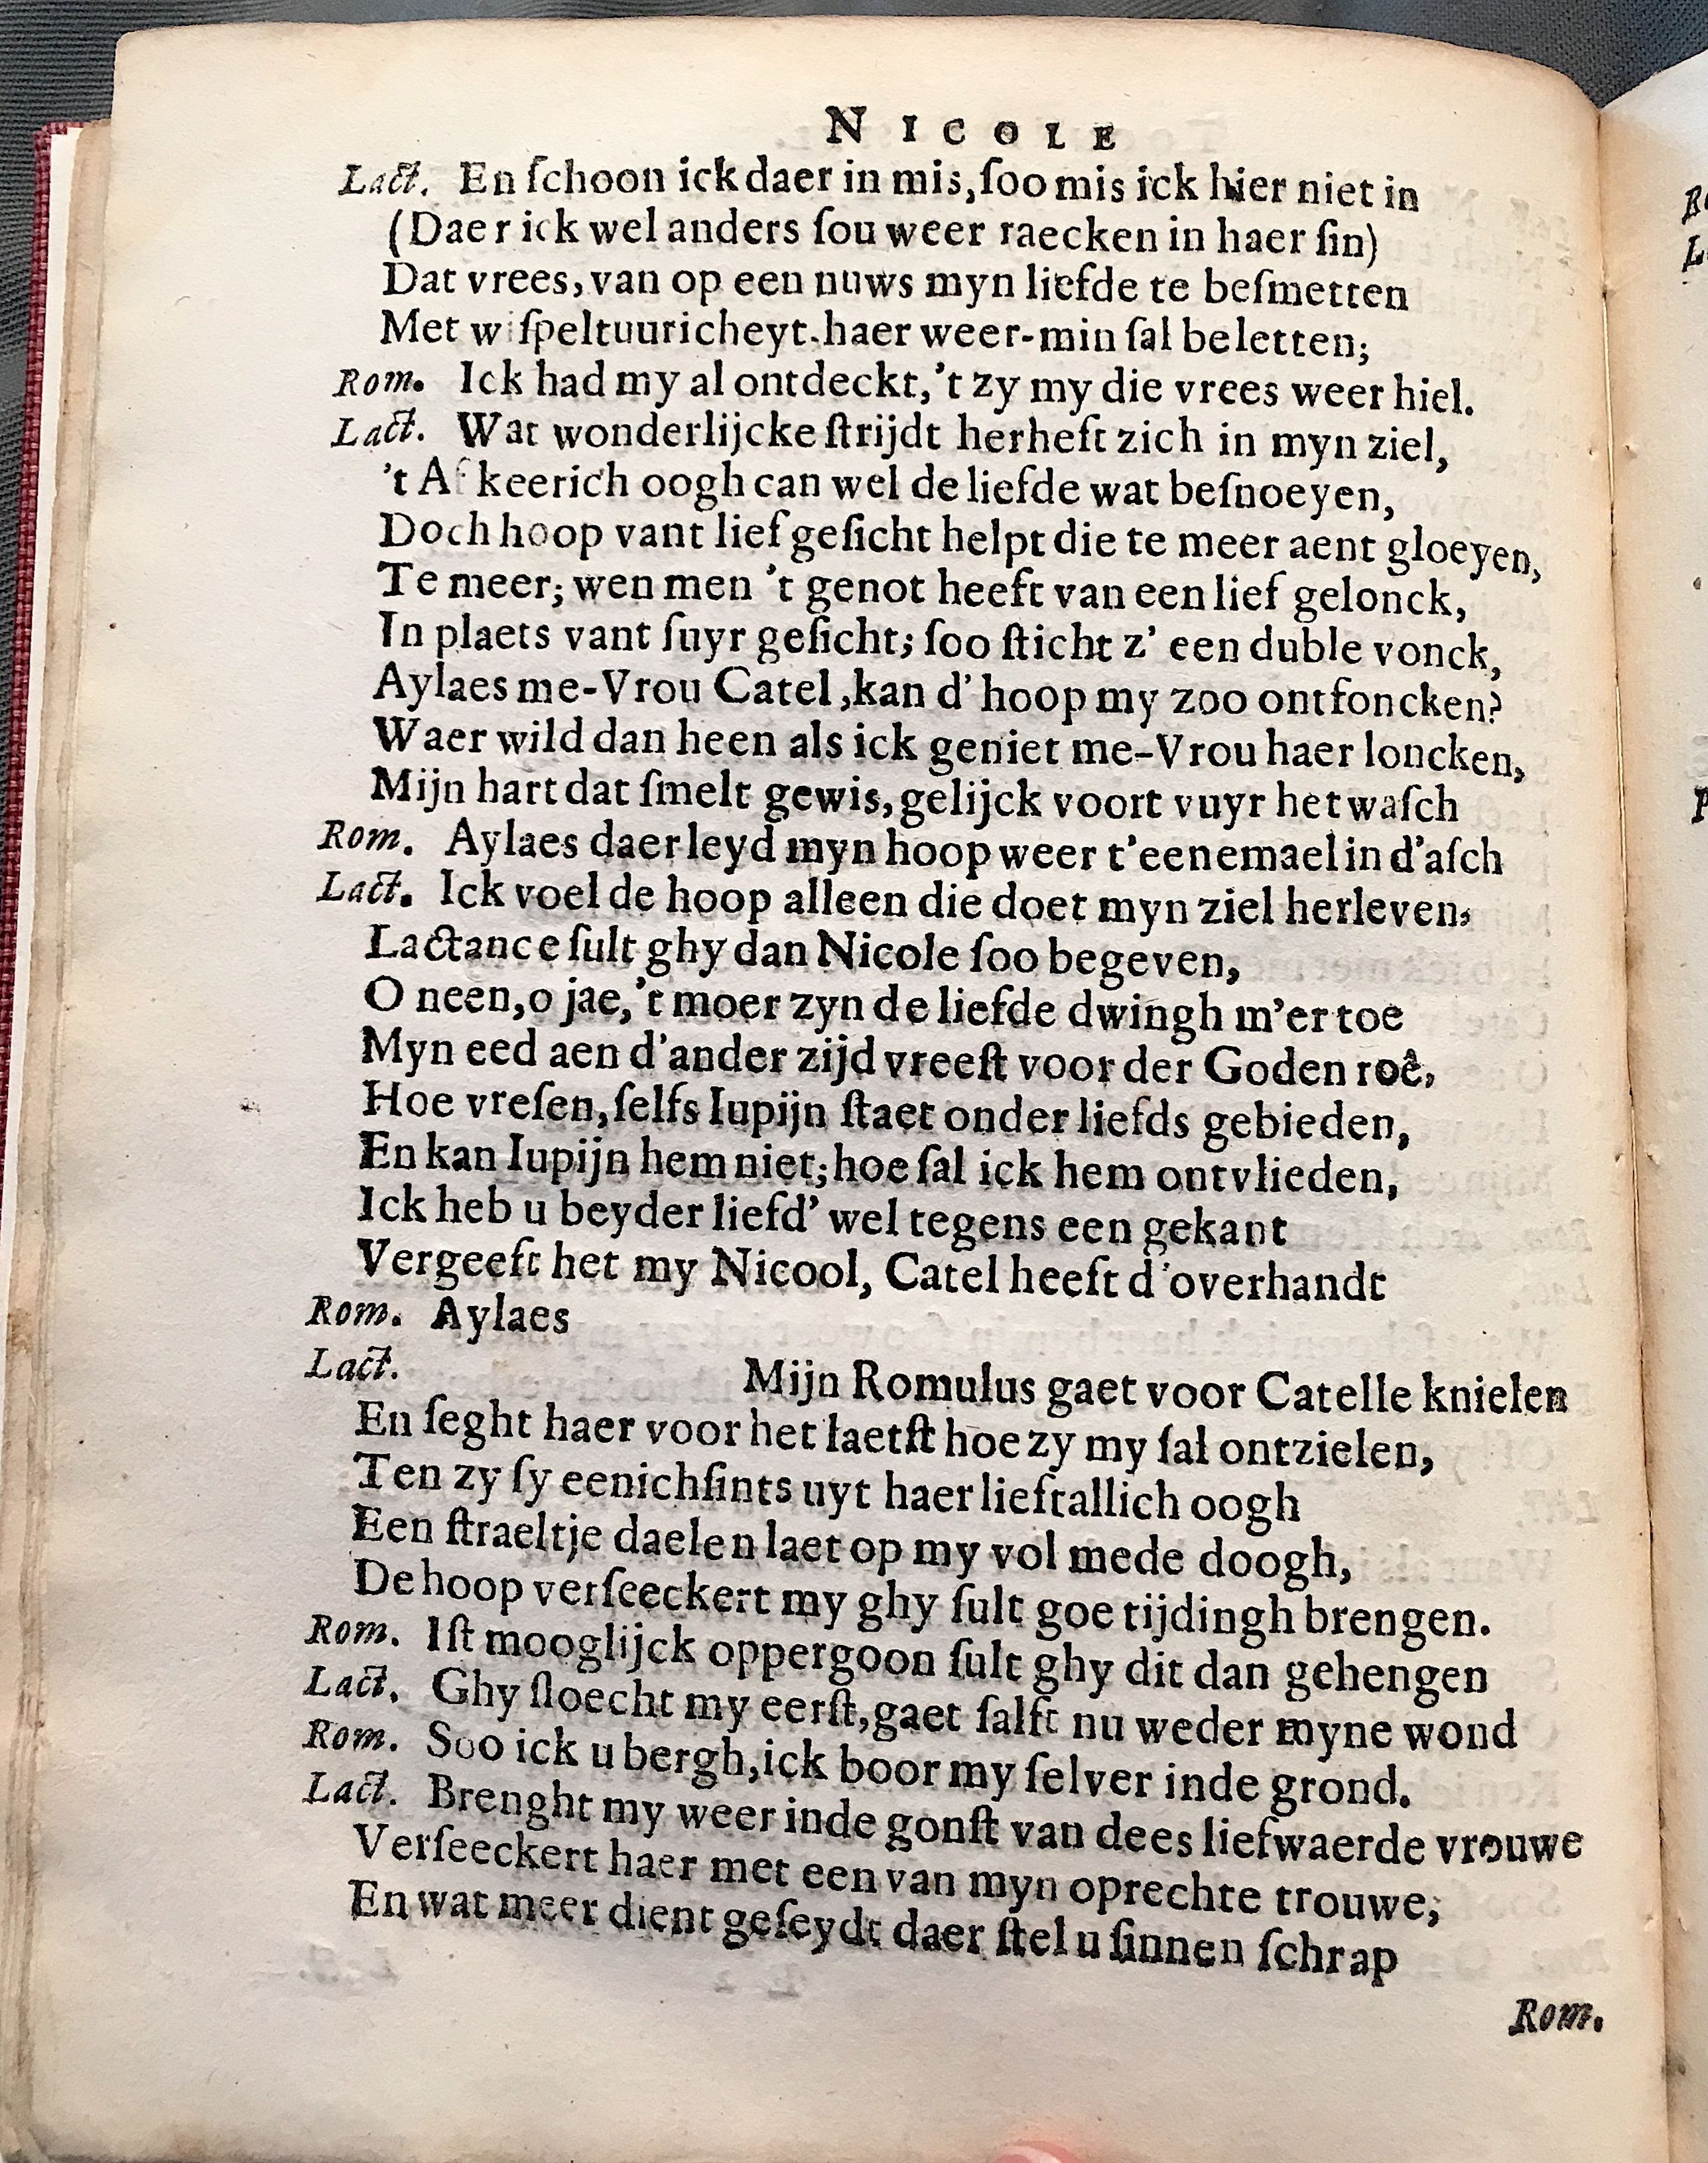 NICOLE
Lact. En ſchoon ick daer in mis, ſoo mis ick hier niet in
(Daer ick wel anders ſou weer raecken in haer ſin)
Dat vrees, van op een nuws myn liefde te beſmetten
Met wiſpeltuuricheyt. haer weer-min ſal beletten;
Rom. Ick had my al ontdeckt, 't zy my die vrees weer hiel.
Lact. Wat wonderlijcke ſtrijdt herheft zich in myn ziel,
't Afkeerich oogh can wel de liefde wat beſnoeyen,
Doch hoop vant lief geſicht helpt die te meer aent gloeyen,
Te meer; wen men 't genot heeft van een lief gelonck,
In plaets vant ſuyr geſicht; ſoo ſticht z' een duble vonck,
Aylaes me-Vrou Catel, kan d' hoop my zoo ontfoncken?
Waer wild dan heen als ick geniet me-Vrou haer loncken,
Mijn hart dat ſmelt gewis, gelijck voort vuyr het waſch
Rom. Aylaes daer leyd myn hoop weer t'eenemael in d'aſch
Lact. Ick voel de hoop alleen die doet myn ziel herleven,
Lactance ſult ghy dan Nicole ſoo begeven,
O neen, o jae, 't moer zyn de liefde dwingh m'er toe
Myn eed aen d'ander zijd vreeſt voor der Goden roê,
Hoe vreſen, ſelfs Iupijn ſtaet onder liefds gebieden,
En kan Iupijn hem niet; hoe ſal ick hem ontvlieden,
Ick heb u beyder liefd' wel tegens een gekant
Vergeeft het my Nicool, Catel heeft d'overhandt
Rom. Aylaes
Lact. Mijn Romulus gaet voor Catelle knielen
En ſeght haer voor het laetſt hoe zy my ſal ontzielen,
Ten zy ſy eenichſints uyt haer lieftallich oogh
Een ſtraeltje daelen laet op my vol mede doogh,
De hoop verſeeckert my ghy ſult goe tijdingh brengen.
Rom. Iſt mooglijck oppergoon ſult ghy dit dan gehengen
Lact. Ghy ſloecht my eerſt, gaet ſalft nu weder myne wond
Rom. Soo ick u bergh, ick boor my ſelver inde grond.
Lact. Brenght my weer inde gonſt van dees liefwaerde vrouwe
Verſeeckert haer met een van myn oprechte trouwe;
En wat meer dient geſeydt daer ſtel u ſinnen ſchrap
Rom.